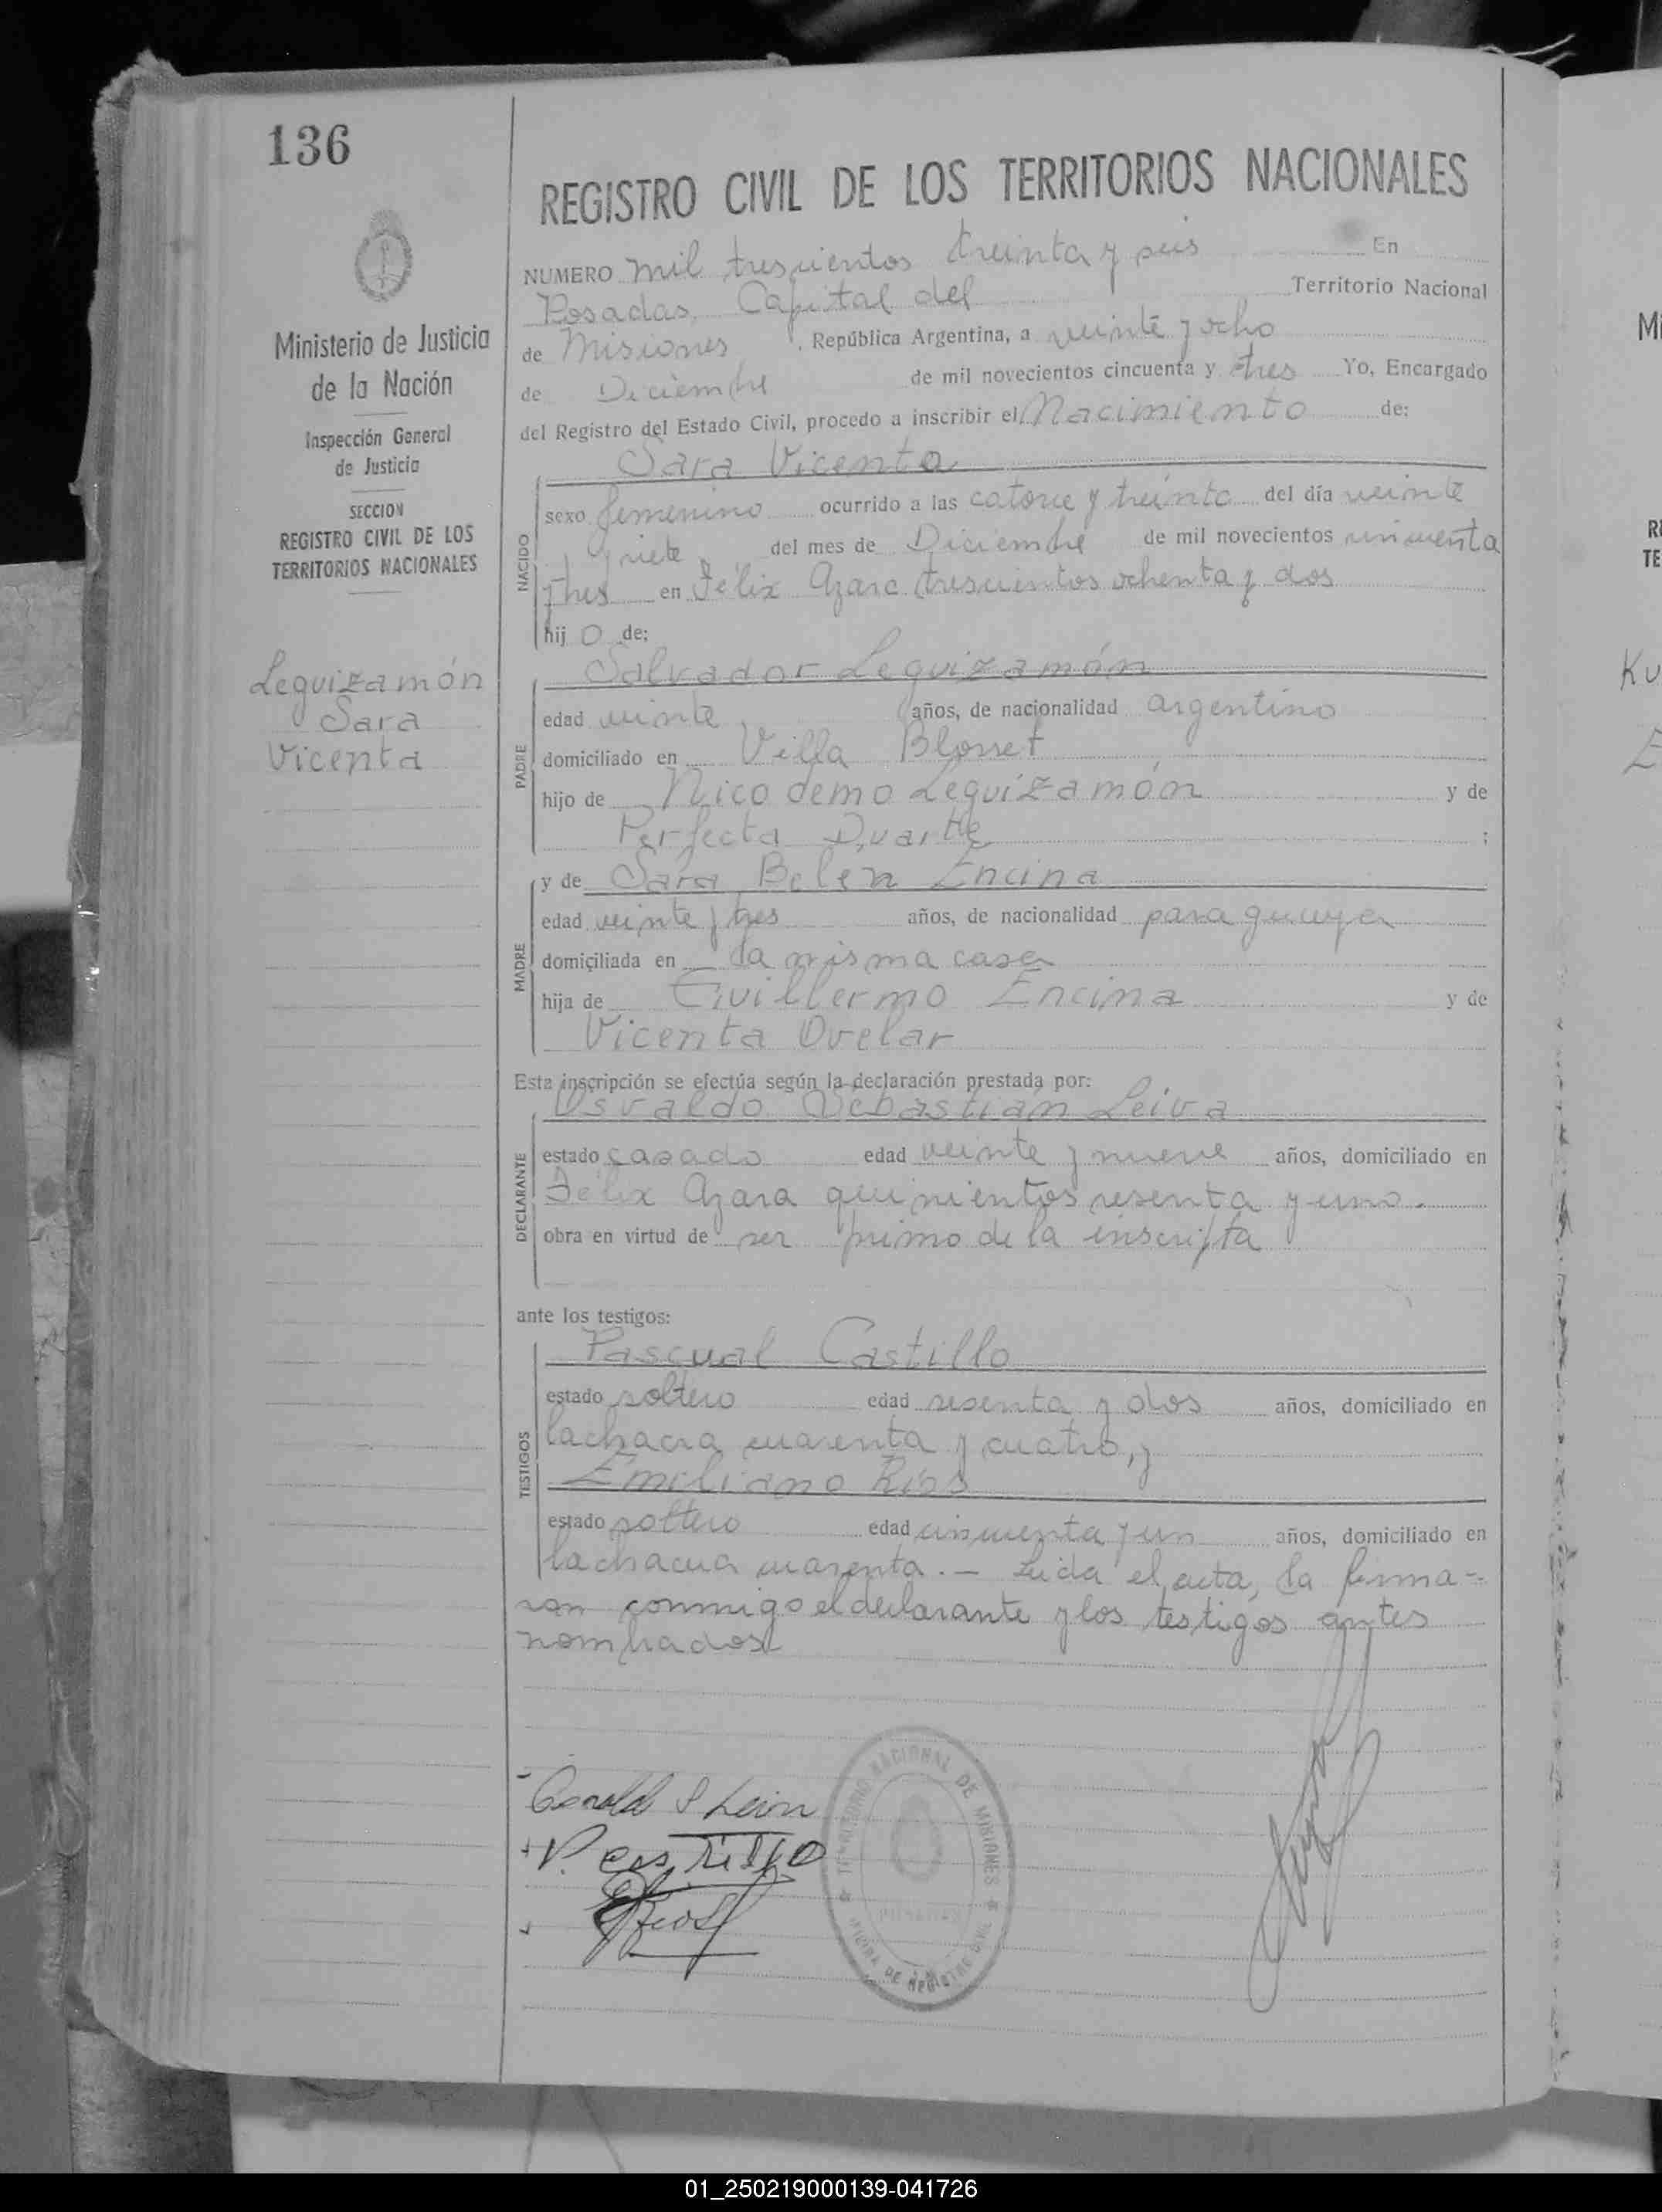 136
REGISTRO CIVIL DE LOS TERRITORIOS NACIONALES
NUMERO mil trescientos treinta y seis En
Posadas, Capital del Territorio Nacional
de Misiones, República Argentina, a veinte y ocho
de Diciembre de mil novecientos cincuenta y tres Yo, Encargado
del Registro del Estado Civil, procedo a inscribir el Nacimiento de:
Sara Vicenta
NACIDO
sexo femenino ocurrido a las catorce y treinta del día veinte
y siete del mes de Diciembre de mil novecientos cincuenta
y tres en Félix Azara trescientos ochenta y dos
hij o de:
Salvador Leguizamón
PADRE
edad veinte años, de nacionalidad argentino
domiciliado en Villa Blosset
hijo de Nicodemo Leguizamón y de
Perfecta Duarte ;
MADRE
y de Sara Belen Encina
edad veinte y tres años, de nacionalidad paraguaya
domiciliada en la misma casa
hija de Guillermo Encina y de
Vicenta Ovelar
Esta inscripción se efectúa según la declaración prestada por:
Osvaldo Sebastián Leiva
DECLARANTE
estado casado edad veinte y nueve años, domiciliado en
Félix Azara quinientos sesenta y uno.
obra en virtud de ser primo de la inscripta
ante los testigos:
Pascual Castillo
TESTIGOS
estado soltero edad sesenta y dos años, domiciliado en
la chacra cuarenta y cuatro, y
Emiliano Ríos
estado soltero edad cincuenta y un años, domiciliado en
la chacra cuarenta. — Leida el acta, la firma=
ron conmigo el declarante y los testigos antes
nombrados
Ministerio de Justicia
de la Nación
Inspección General
de Justicia
SECCION
REGISTRO CIVIL DE LOS
TERRITORIOS NACIONALES
Leguizamón
Sara
Vicenta
Osvaldo S Leiva
P. Castillo
E Rios
TERRITORIO NACIONAL DE MISIONES
OFICINA DE REGISTRO CIVIL
Mi
RE
TE
Ku
01_250219000139-041726